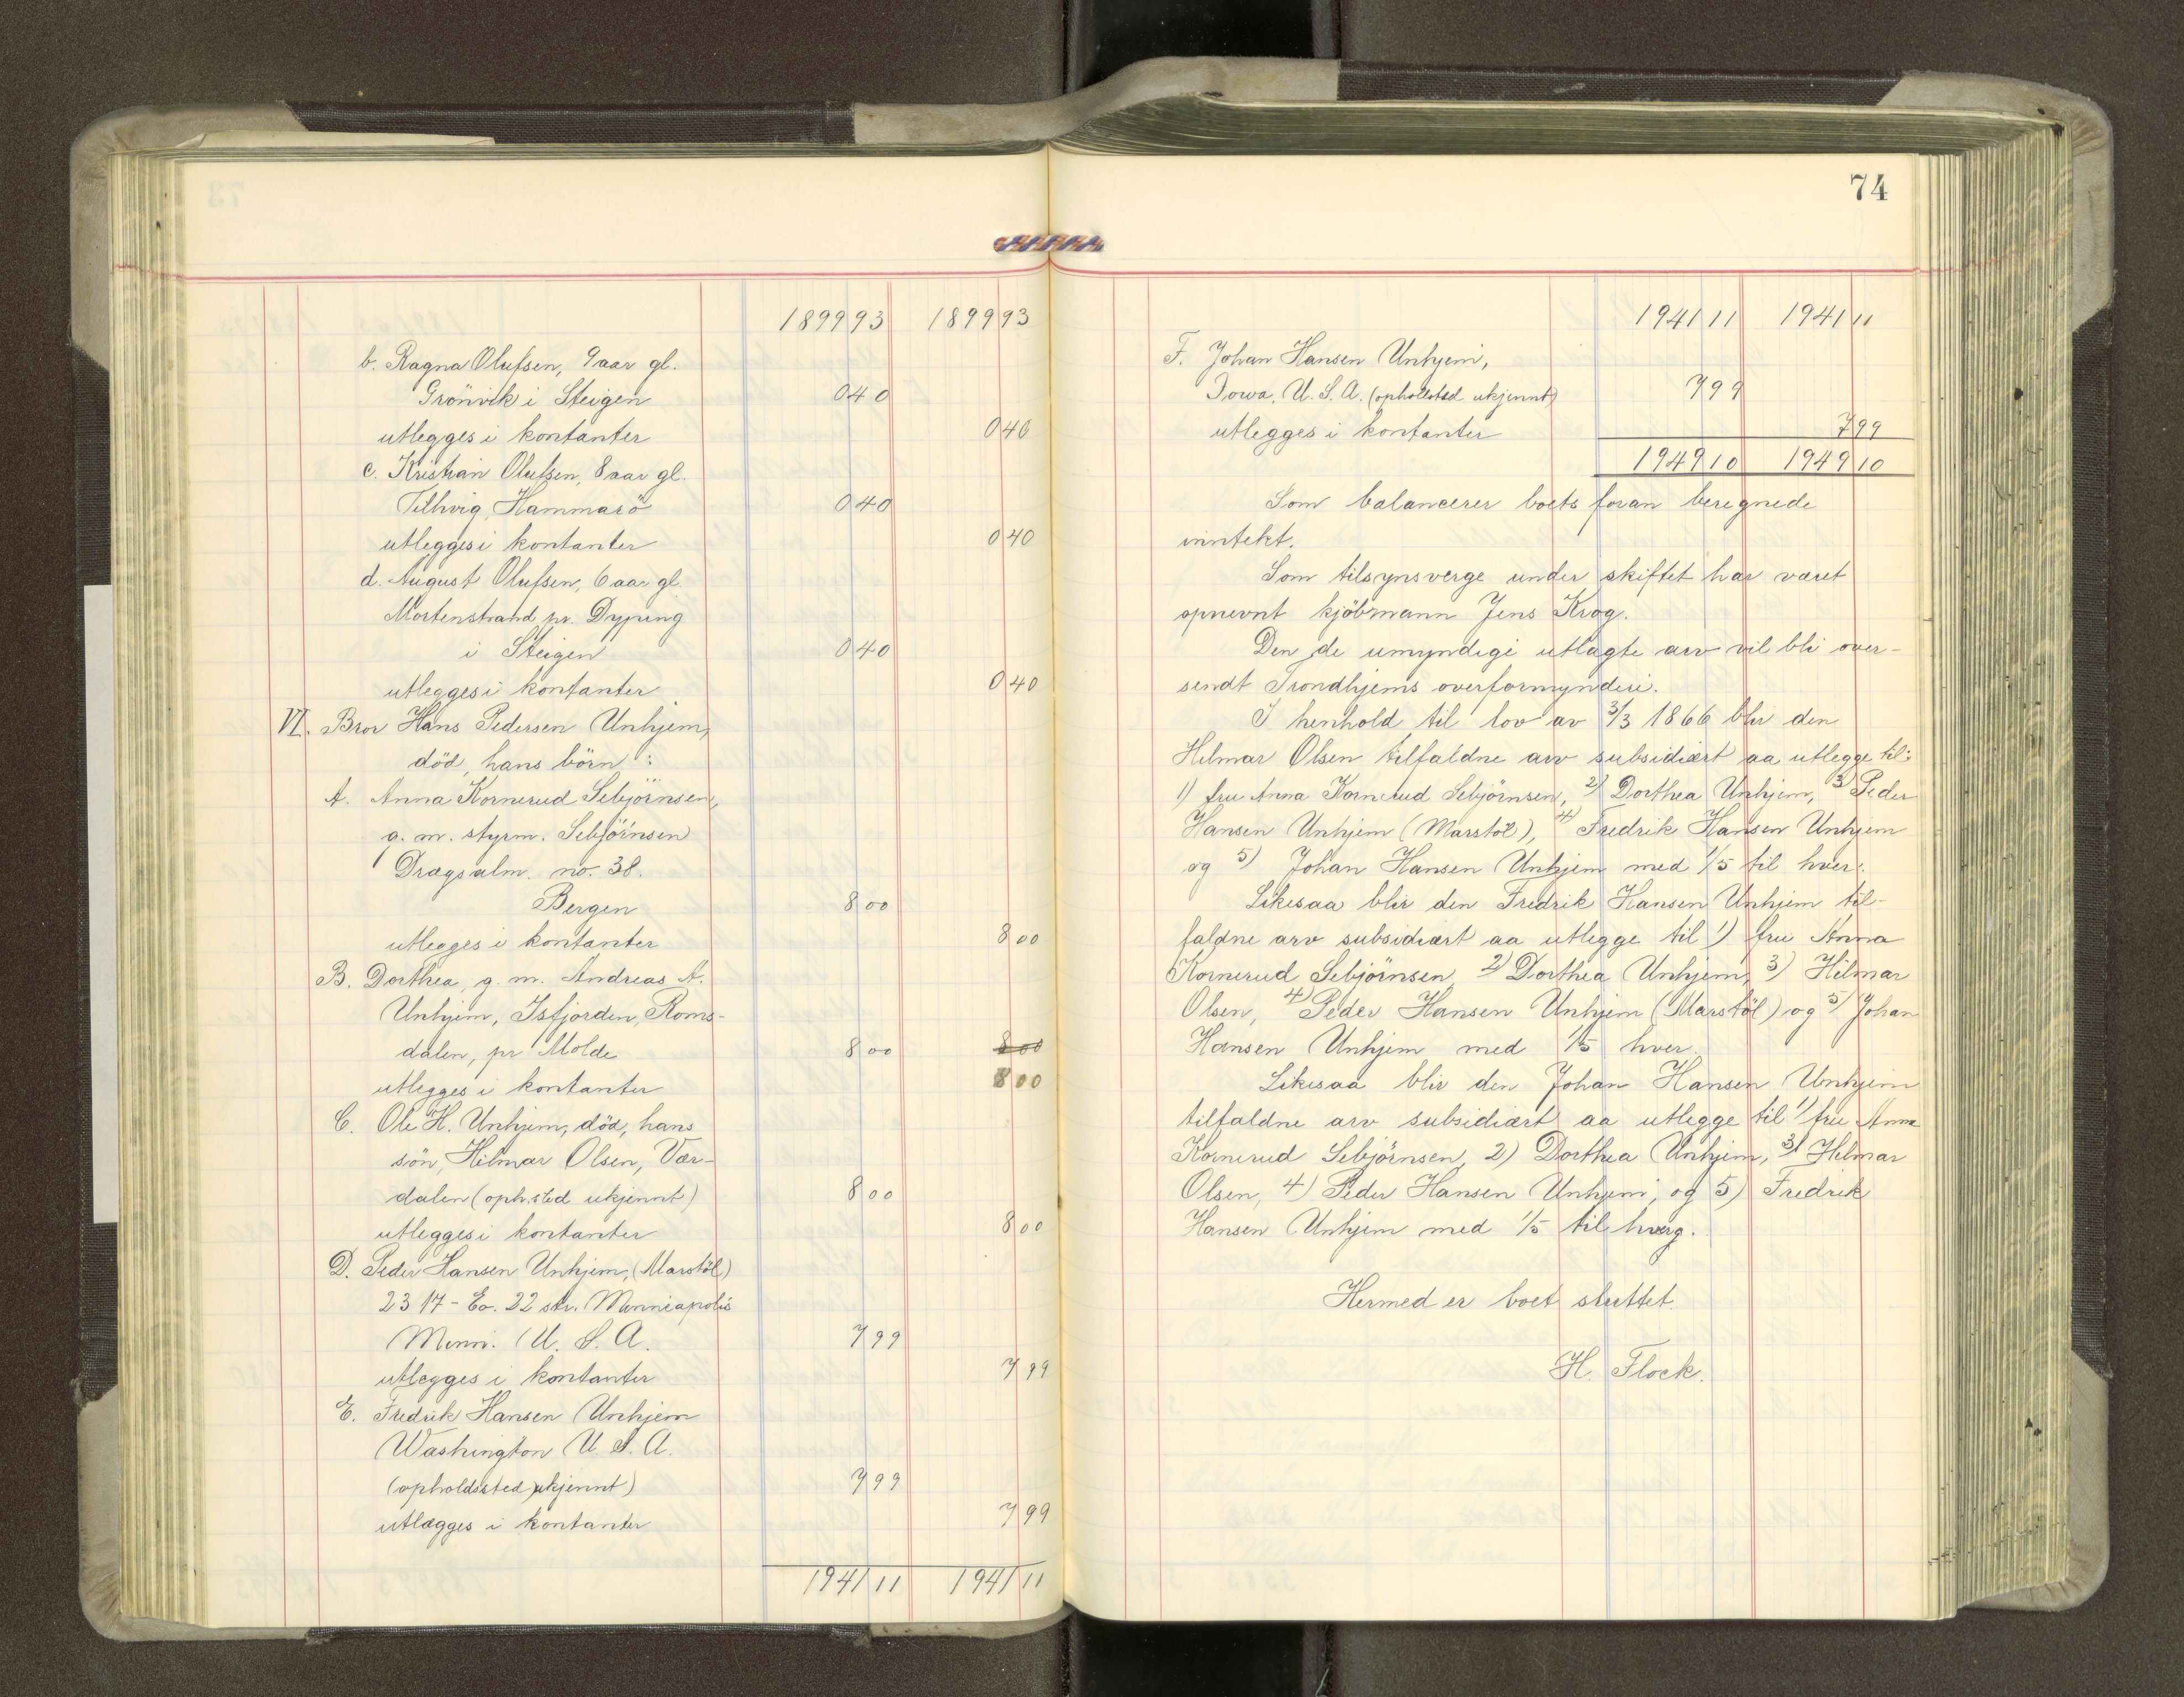 1899 93 1899 93
b. Ragna Olufsen, 9 aar gl.
Grönvik i Steigen 0 40
utlegges i kontanter 0 40
c. Kristian Olufsen, 8 aar gl.
Tilthvig, Hammarö 0 40
utlegges i kontanter 0 40
d. August Olufsen, 6 aar gl.
Mortenstrand pr. Dyping
i Steigen 0 40
utlegges i kontanter 0 40
VI. Bror Hans Pedersen Unhjem,
död, hans börn:
A. Anna Kornerud Sebjörnsen,
g. m. styrm. Sebjörnsen
Dragsalm. no. 38.
Bergen 8 00
utlegges i kontanter 8 00
B. Dorthea, g. m. Andreas A.
Unhjem, Isfjorden, Roms-
dalen, pr Molde 8 00 8 00
utlegges i kontanter 8 00
C. Ole H. Unhjem, död, hans
sön, Hilmar Olsen, Vær-
dalen (oph.sted ukjennt) 8 00
utlegges i kontanter 8 00
D. Peder Hansen Unhjem, (Marstöl)
23 17 - Eo. 22 str. Minniapolis
Minn. U. S. A. 7 99
utlegges i kontanter 7 99
E. Fredrik Hansen Unhjem
Washington U. S. A.
(opholdssted ukjennt) 7 99
utlægges i kontanter 7 99
1941 11 1941 11
74
1941 11 1941 11
F. Johan Hansen Unhjem,
Iowa. U. S. A. (opholdsted ukjennt) 7 99
utlegges i kontanter 7 99
1949 10 1949 10
Som balancerer boets foran beregnede
inntekt.
Som tilsynsverge under skiftet har været
opnevnt kjöbmann Jens Krog.
Den de umyndige utlagte arv vil bli over-
sendt Trondhjems overformynderi.
I henhold til lov av 3/3 1866 blir den
Hilmar Olsen tilfaldne arv subsidiært aa utlegge til:
1) fru Anna Kornerud Sebjörnsen, 2) Dorthea Unhjem, 3) Peder
Hansen Unhjem (Marstöl), 4) Fredrik Hansen Unhjem
og 5) Johan Hansen Unhjem med 1/5 til hver.
Likesaa blir den Fredrik Hansen Unhjem til-
faldne arv subsidiært aa utlegge til 1) fru Anna
Kornerud Sebjörnsen, 2) Dorthea Unhjem, 3) Hilmar
Olsen, 4) Peder Hansen Unhjem (Marstöl) og 5) Johan
Hansen Unhjem med 1/5 hver.
Likesaa blir den Johan Hansen Unhjem
tilfaldne arv subsidiært aa utlegge til 1) fru Anna
Kornerud Sebjörnsen, 2) Dorthea Unhjem, 3) Hilmar
Olsen, 4) Peder Hansen Unhjem, og 5) Fredrik
Hansen Unhjem med 1/5 til hverg.
Hermed er boet sluttet.
H. Flock.